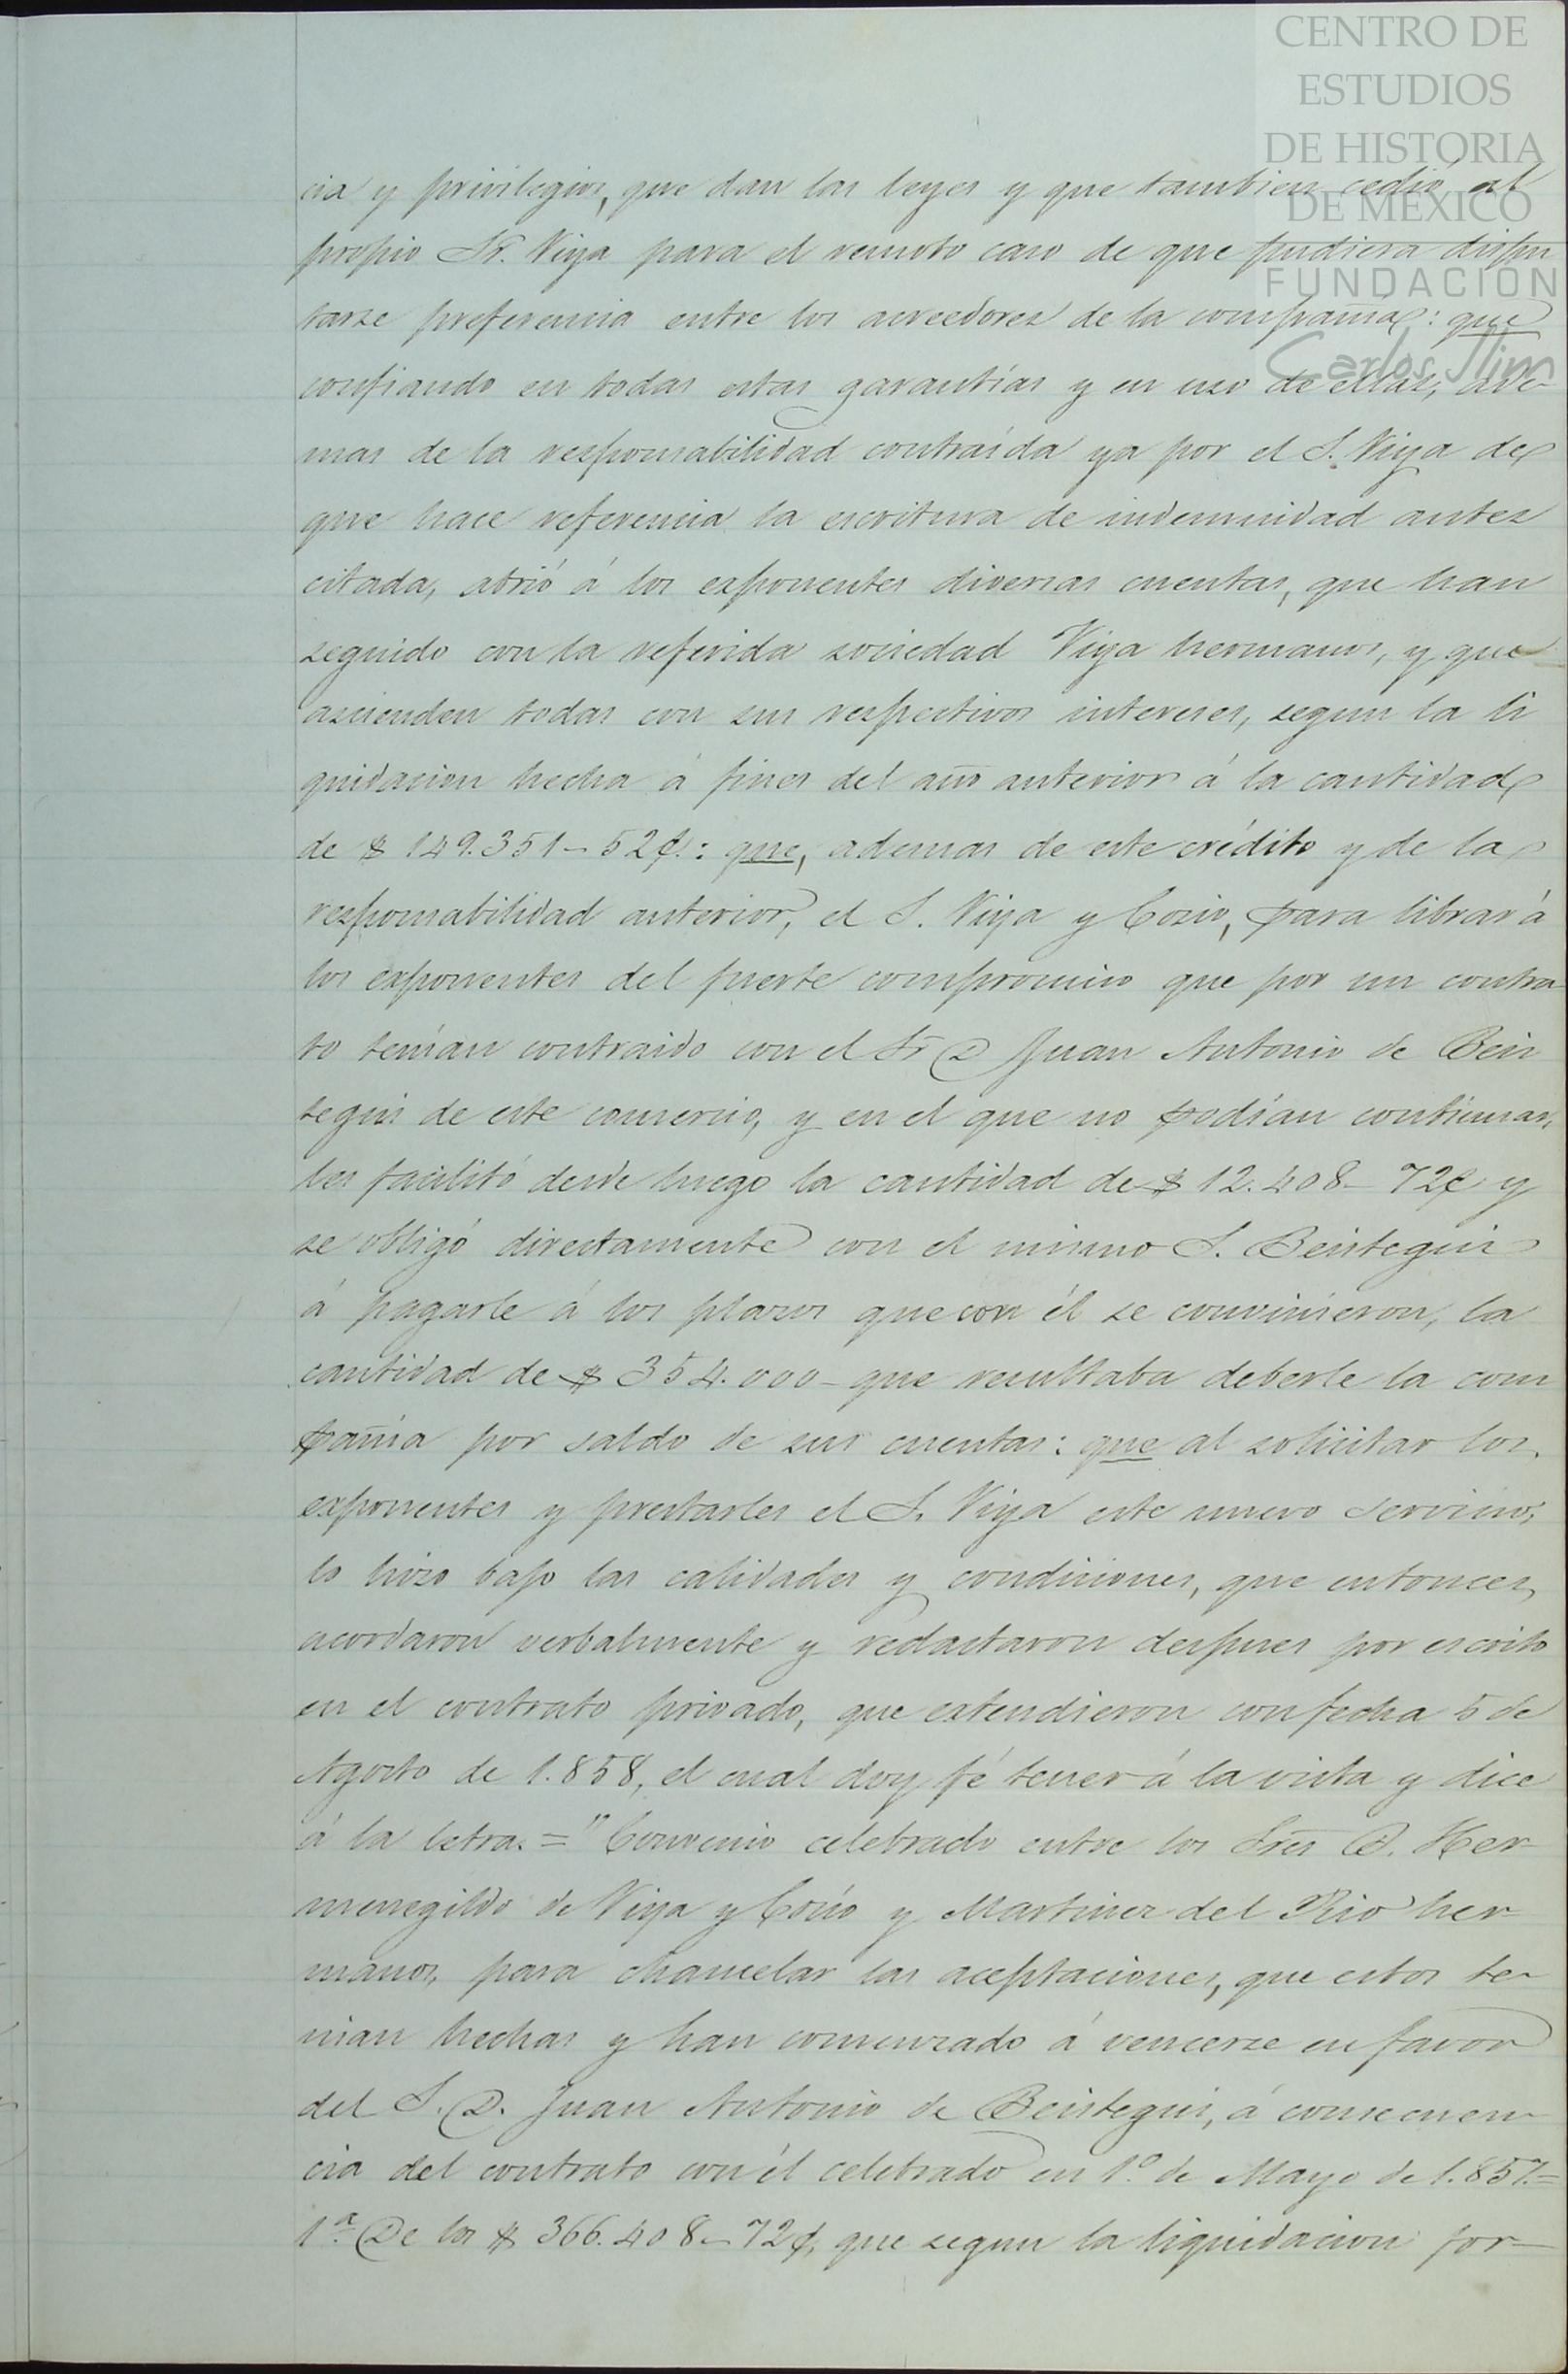 CENTRO DE
ESTUDIOS
DE HISTORIA
DE MÉXICO
FUNDACIÓN
Carlos Slim
cia y privilegios, que dan las leyes y que tambien cedió al
propio Sr. Viya para el remoto caso de que pudiera dispu
tarse preferencia entre los acreedores de la compañia: que
confiando en todas estas garantías y en uso de ellas, ade-
mas de la responsabilidad contraída ya por el S. Viya de
que hace referencia la escritura de indemnidad antes
citada, abrió á los exponentes diversas cuentas, que han
seguido con la referida sociedad Viya hermanos, y que
ascienden todas con sus respectivos intereses, segun la li
quidacion hecha á fines del año anterior á la cantidad
de $ 149.351-52¢.: que, ademas de este crédito y de la
responsabilidad anterior, el S. Viya y Cosio, para librar á
los exponentes del fuerte compromiso que por un contra
to tenían contraido con el Sr D Juan Antonio de Beis
tegui de este comercio, y en el que no podían continuar,
les facilitó desde luego la cantidad de $ 12.408-72¢ y
se obligó directamente con el mismo S. Beistegui
á pagarle á los plazos que con él se convinieron, la
cantidad de $ 354.000- que resultaba deberle la com
pañía por saldo de sus cuentas: que al solicitar los
exponentes y prestarles el S. Viya este nuevo servicio,
lo hizo bajo las calidades y condiciones, que entonces
acordaron verbalmente y redactaron despues por escrito
en el contrato privado, que extendieron con fecha 5 de
Agosto de 1.858, el cual doy fé tener á la vista y dice
á la letra. = "Convenio celebrado entre los Sres D. Her-
menegildo de Viya y Cosío y Martinez del Rio her-
manos, para chancelar las aceptaciones, que estos te-
nian hechas y han comenzado á vencerse en favor
del S. D. Juan Antonio de Beistegui, á consecuen-
cia del contrato con él celebrado en 1º de Mayo de 1.857.=
1ª. De los $ 366.408-72¢, que segun la liquidacion for-